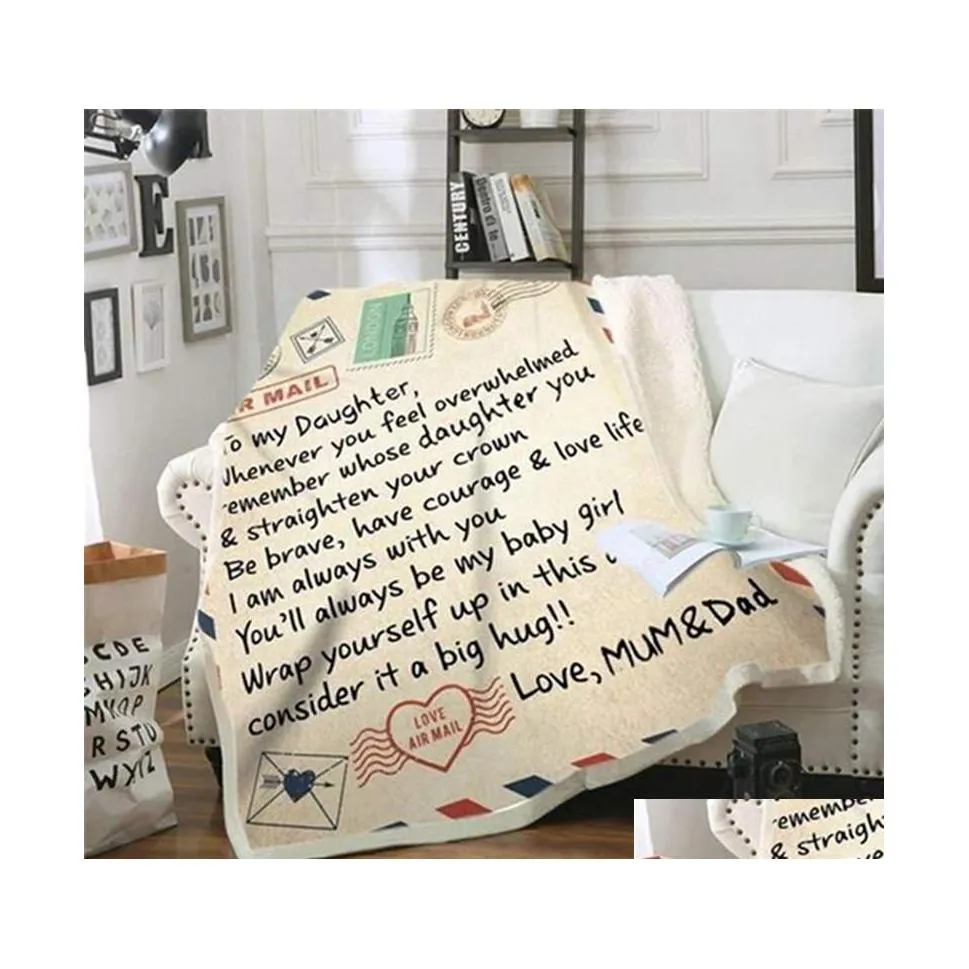 CENTURY
Dentro di te
E
LONDON
R MAIL
To my Daughter,
Whenever you feel overwhelmed
remember whose daughter you
& straighten your crown
Be brave, have courage & love life
I am always with you
You'll always be my baby girl
Wrap yourself up in this
consider it a big hug!!
Love, MUM&Dad
LOVE
AIR MAIL
CDE
HIJK
R STU
WXYZ
emember
& straigh